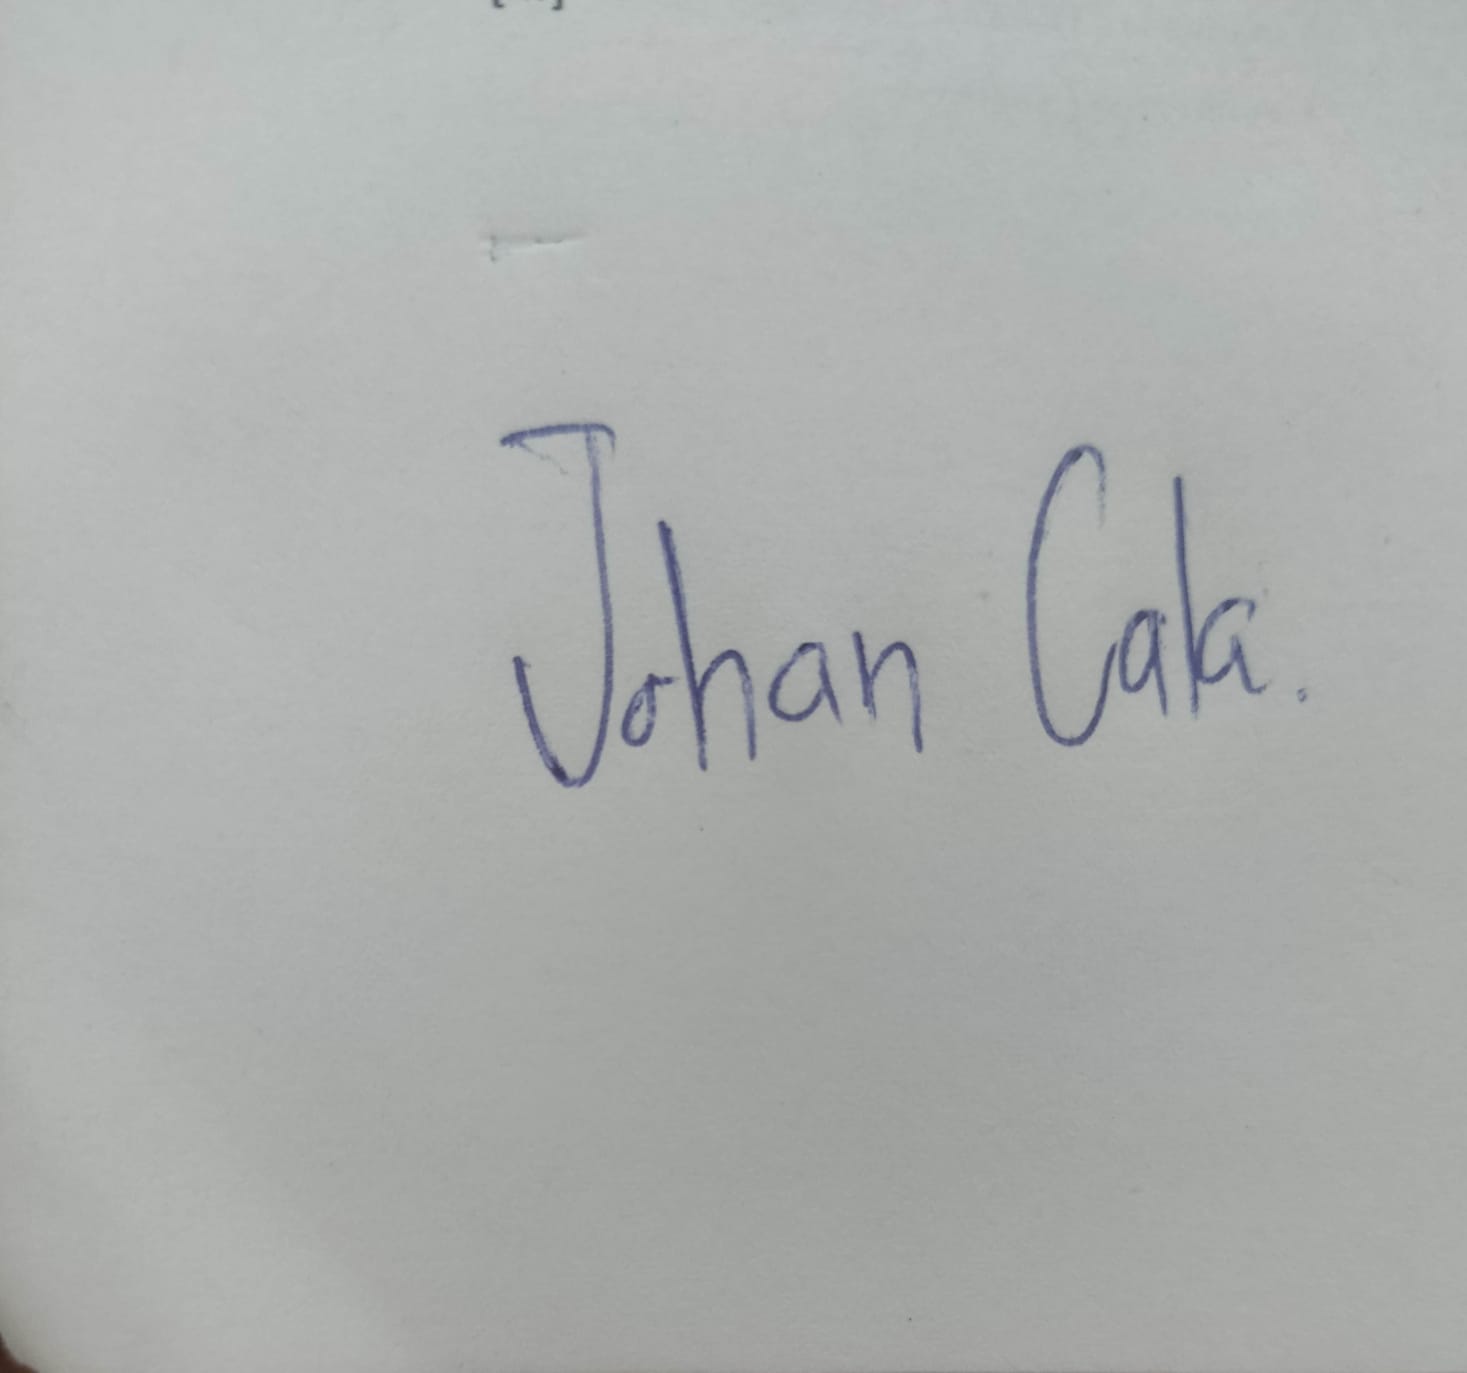 Johan Cala.